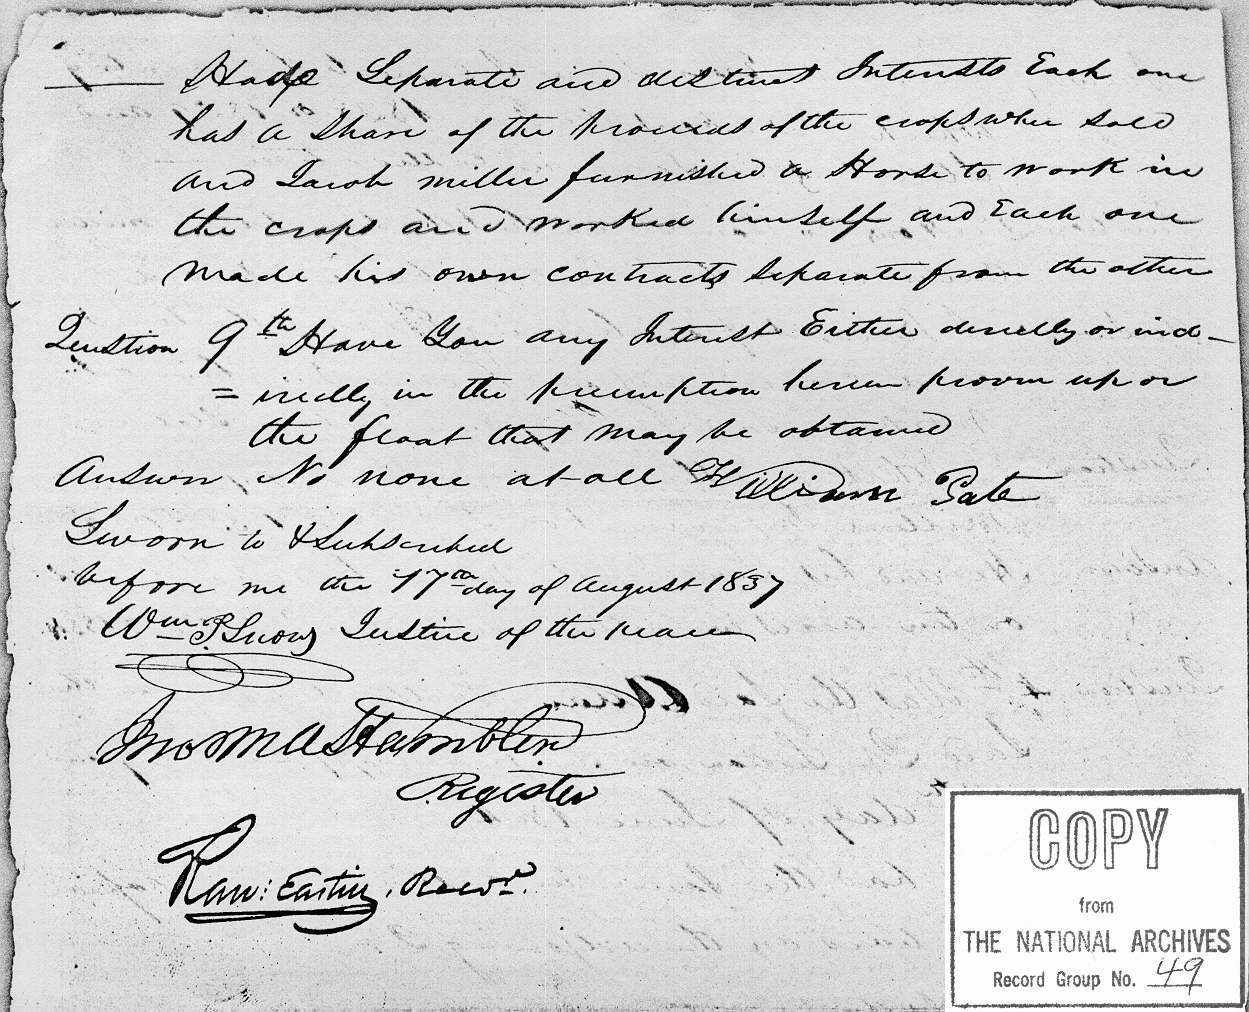 Had Separate and distinct Interests Each one
has a Share of the proceeds of the crops when sold
and Jacob miller furnished a Horse to work in
the crops and worked himself and Each one
made his own contracts separate from the other
Question 9th Have You any Interest Either directly or ind-
=irectly in the preemption herein proven up or
the float that may be obtained
Answer No none at all William Pate
Sworn to & Subscribed
before me the 17th day of August 1837
Wm P. Snow Justice of the peace
Hamblen
Register
Raw: Eastin, Recvr.
COPY
from
THE NATIONAL ARCHIVES
Record Group No. 49